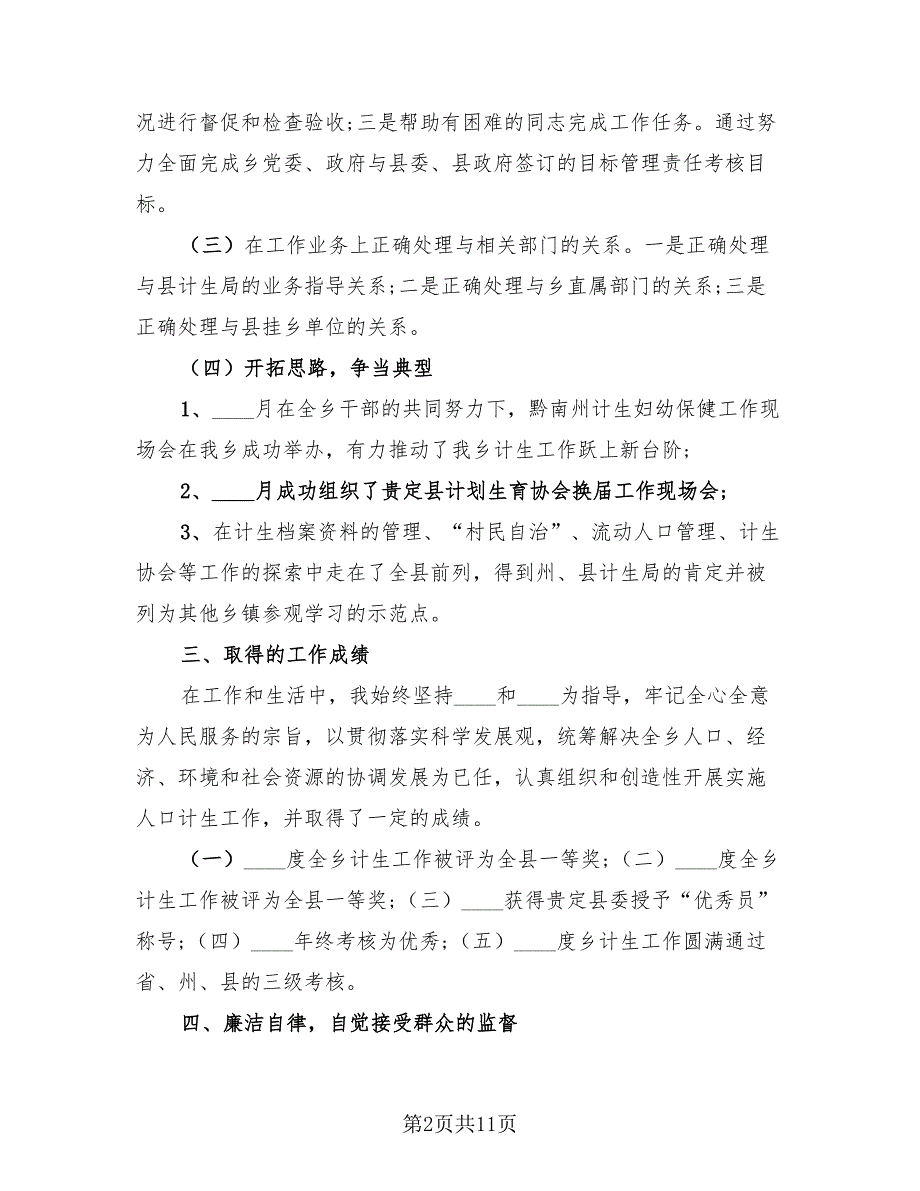 况进行督促和检查验收;三是帮助有困难的同志完成工作任务。通过努
力全面完成乡党委、政府与县委、县政府签订的目标管理责任考核目
标。
（三）在工作业务上正确处理与相关部门的关系。一是正确处理
与县计生局的业务指导关系;二是正确处理与乡直属部门的关系;三是
正确处理与县挂乡单位的关系。
（四）开拓思路，争当典型
1、____月在全乡干部的共同努力下，黔南州计生妇幼保健工作现
场会在我乡成功举办，有力推动了我乡计生工作跃上新台阶;
2、____月成功组织了贵定县计划生育协会换届工作现场会;
3、在计生档案资料的管理、“村民自治”、流动人口管理、计生
协会等工作的探索中走在了全县前列，得到州、县计生局的肯定并被
列为其他乡镇参观学习的示范点。
三、取得的工作成绩
在工作和生活中，我始终坚持____和____为指导，牢记全心全意
为人民服务的宗旨，以贯彻落实科学发展观，统筹解决全乡人口、经
济、环境和社会资源的协调发展为已任，认真组织和创造性开展实施
人口计生工作，并取得了一定的成绩。
（一）____度全乡计生工作被评为全县一等奖;（二）____度全乡
计生工作被评为全县一等奖;（三）____获得贵定县委授予“优秀员”
称号;（四）____年终考核为优秀;（五）____度乡计生工作圆满通过
省、州、县的三级考核。
四、廉洁自律，自觉接受群众的监督
第2页共11页